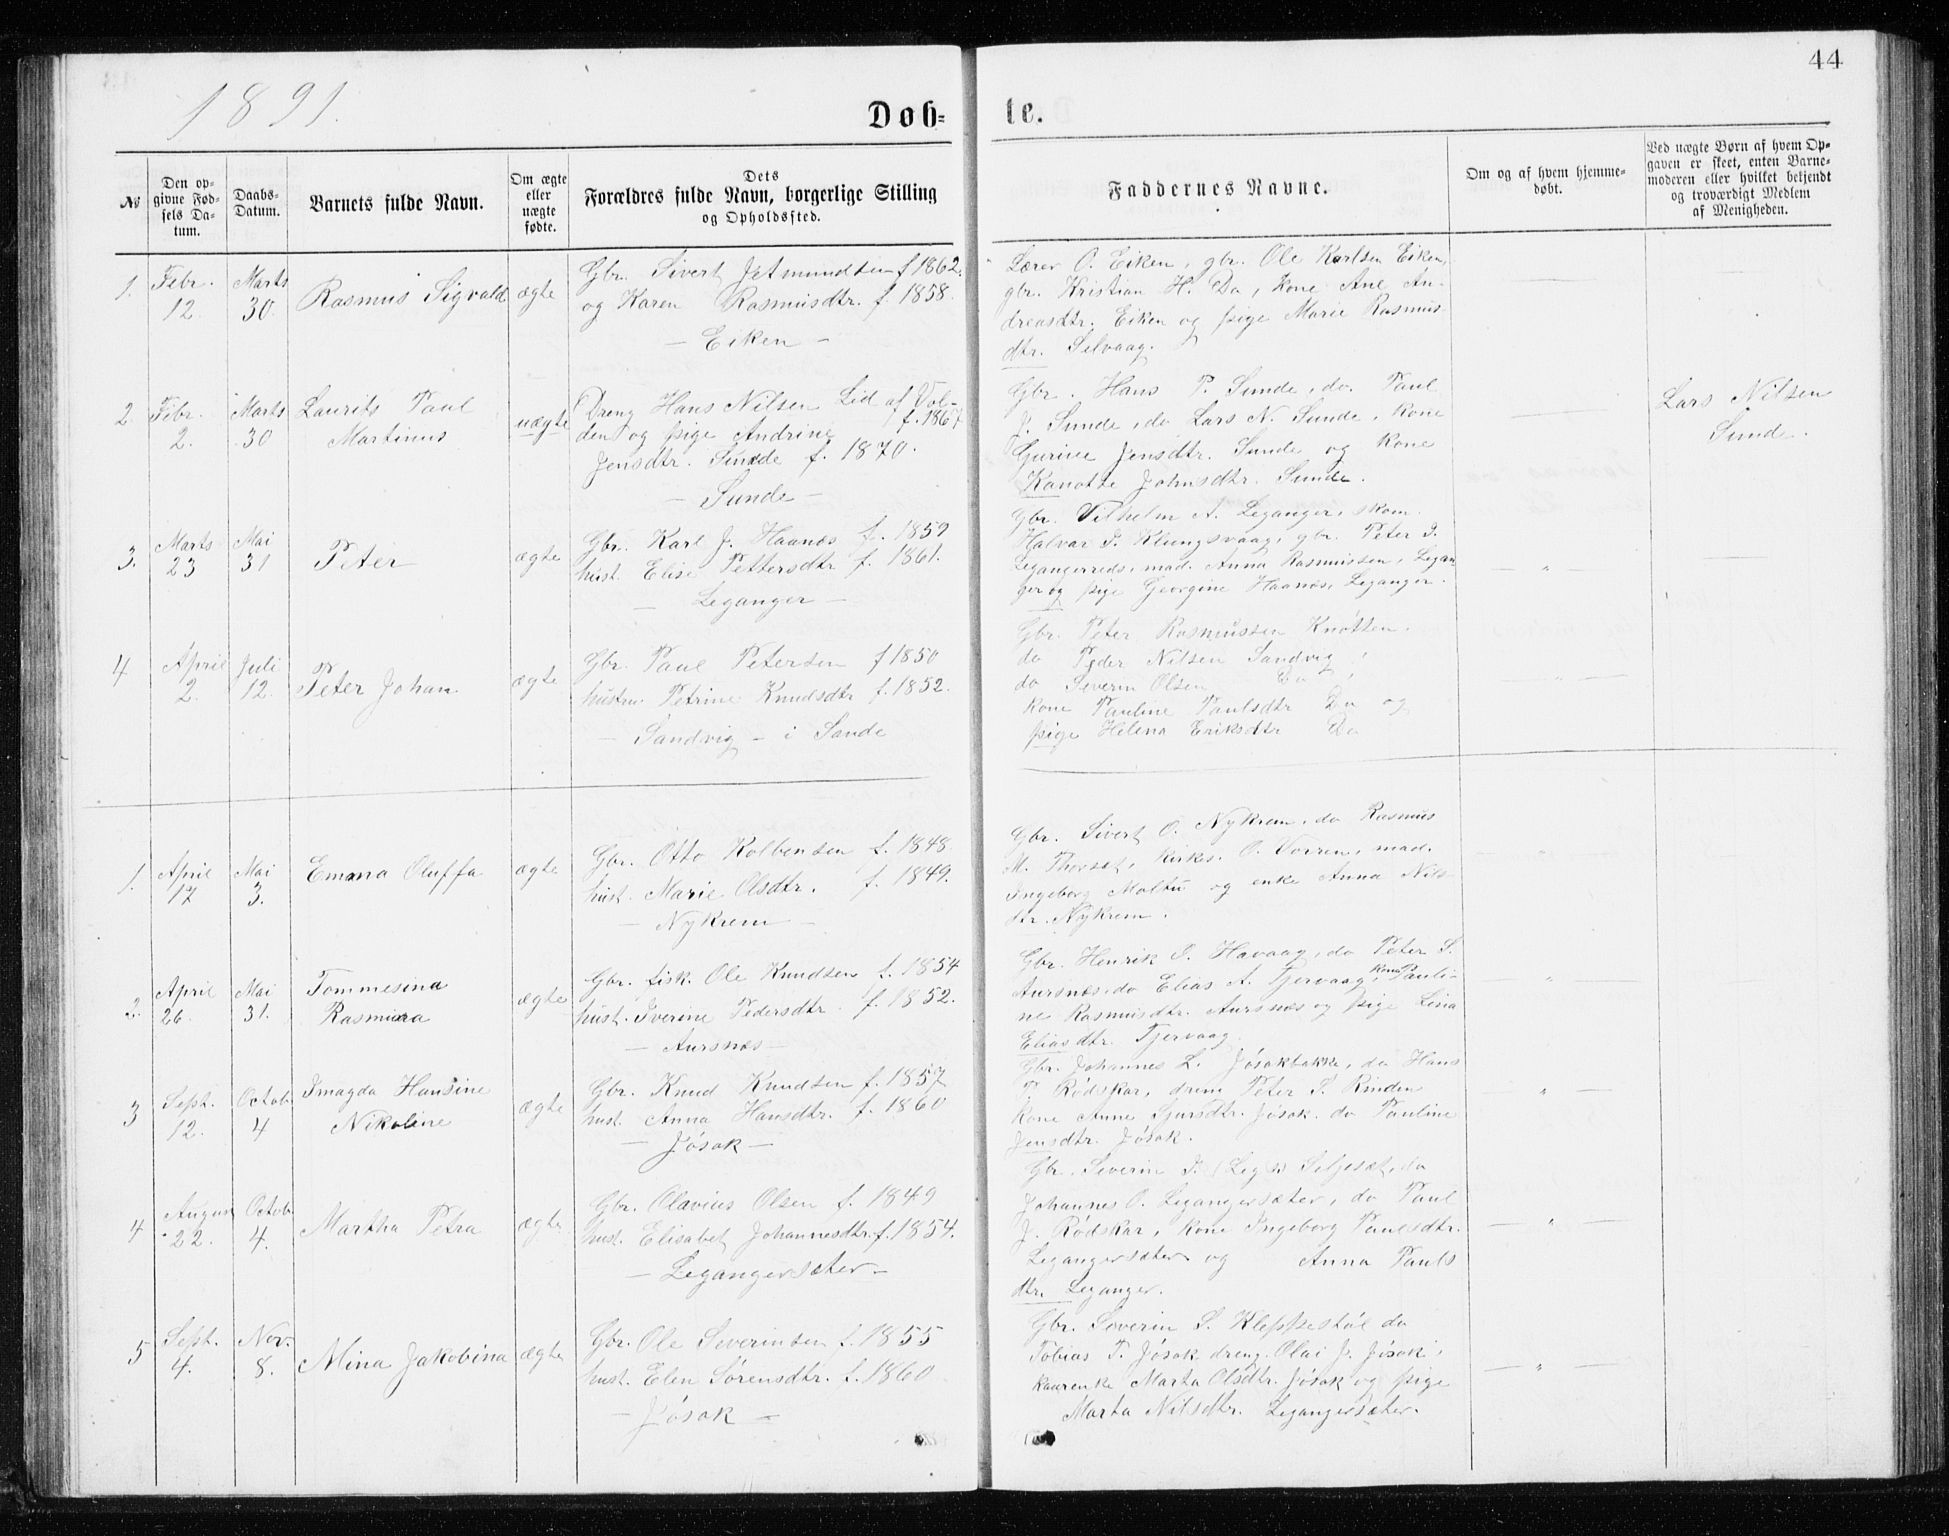 44
1891.
Døb-
te.
№
Den op-
givne Fød-
sels Da-
tum.
Daabs-
Datum.
Barnets fulde Navn.
Om ægte
eller
uægte
fødte.
Dets
Forældres fulde Navn, borgerlige Stilling
og Opholdssted.
Faddernes Navne.
Om og af hvem hjemme-
døbt.
Ved uægte Børn af hvem Op-
gaven er skeet, enten Barne-
moderen eller hvilket bekjendt
og troværdigt Medlem
af Menigheden.
1.
Febr.
12.
Marts
30.
Rasmus Sigvald
ægte
Gbr. Sivert J. Amundsen f 1862.
og Karen Rasmusdtr. f. 1858.
- Eiken -
Lærer O. Eiken, gbr. Ole Karlsen Eiken,
gbr. Kristian H. Do, kone Ane An-
dreasdtr. Eiken og pige Marie Rasmus
dtr. Selvaag.
2.
Febr.
2.
Marts
30
Laurits Paul
Martinus
uægte
Dreng Hans Nilsen Lid af Vol-
den og pige Andrine f. 1867
Jensdtr. Sunde f. 1870.
- Sunde -
Gbr. Hans P. Sunde, do Paul
J. Sunde, do Lars N. Sunde, kone
Gurine Jensdtr. Sunde og kone
Kanotte Johnsdtr. Sunde.
Lars Nilsen
Sunde.
3.
Marts
23
Mai
31
Peter
ægte
Gbr. Karl J. Haanæs f. 1859
hust. Elise Pettersdtr f. 1861.
- Leganger -
Gbr. Vilhelm A. Leganger, skom.
Halvar P. Klungsvaag, gbr. Peter I.
Legangerreds, mad. Anna Rasmussen, Legan
ger og pige Georgine Haanæs, Leganger.
4
April
2.
Juli
12.
Peter Johan
ægte
Gbr. Paul Petersen f 1850
hustru Petrine Knudsdtr f. 1852.
- Sandvig - i Sande
Gbr. Peter Rasmussen Knotten.
do Peder Nilsen Sandvig,
do Severin Olsen Do,
kone Pauline Paulsdtr Do og
pige Helena Eriksdtr Do
1.
April
17
Mai
3.
Emma Oluffa
ægte
Gbr. Otto Kolbensen f. 1848.
hust. Marie Olsdtr. f. 1849.
- Nykrem -
Gbr. Sivert O. Nykrem, do Rasmus
M. Thorset, kirkes. O. Vorren, mad.
Ingeborg Moltu og enke Anna Nils
dtr. Nykrem.
2.
April
26.
Mai
31.
Tommesina
Rasmina
ægte
Gbr. fisk. Ole Knudsen f. 1854
hust. Iverine Pedersdtr. f. 1852.
- Aursnæs -
Gbr. Henrik O. Havaag, do Peter S.
Aursnæs, do Elias A. Tjervaag, kone Pauli-
ne Rasmusdtr. Aursnæs og pige Lina
Eliasdtr. Tjervaag.
3
Sept.
12.
Octob.
4
Smagda Hansine
Nikoline
ægte
Gbr. Knud Knudsen f. 1857
hust. Anna Hansdtr. f. 1860
- Jøsok -
Gbr. Johannes L. Jøsokbakke, do Hans
P. Rødskar, dreng Peter P. Rinden
kone Anne Sjursdtr. Jøsok. do Pauline
Jensdtr. Jøsok.
4
August
22.
Octob
4.
Martha Petra
ægte
Gbr. Olavius Olsen f. 1849
hust. Elisabet Johannesdtr. f. 1854.
- Legangersæter -
Gbr. Severin P. Seljesæt, do
Johannes O. Legangersæter, do Paul
J. Rødskar, kone Ingeborg Paulsdtr.
Legangersæter og Anna Pauls
dtr. Leganger.
5
Sept.
4.
Nov.
8.
Mina Jakobina
ægte
Gbr. Ole Severinsen f. 1855
hust. Elen Sørensdtr. f. 1860
- Jøsok -
Gbr. Severin S. Kleppestøl do
Tobias P. Jøsok dreng Olai J. Jøsok,
kaarenke Marta Olsdtr. Jøsok og pige
Marta Nilsdtr. Legangersæter.